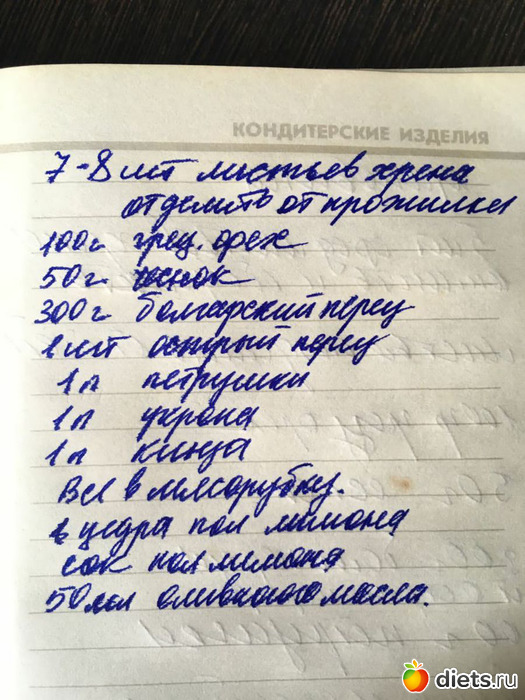 КОНДИТЕРСКИЕ ИЗДЕЛИЯ
7-8 шт листьев хрена
отделить от прожилки
100 г грец. орех
50 г чеснок
300 г болгарский перец
1 шт острый перец
1 п петрушки
1 п укропа
1 п кинза
Все в мясорубку.
цедра пол лимона
сок пол лимона
50 мл оливкового масла.
diets.ru